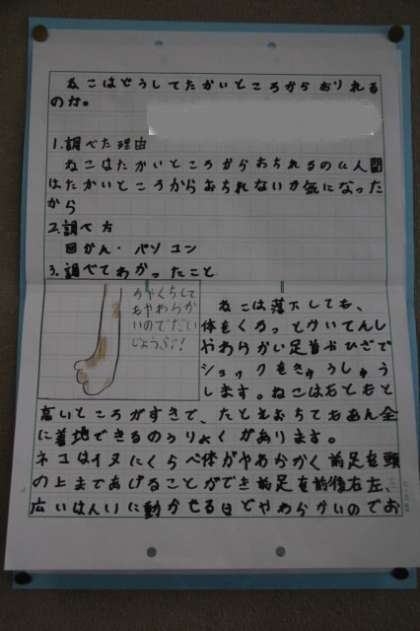 ねこはどうしてたかいところからおりれる
のか。
1.調べた理由
ねこはたかいところからおちれるのに人間
はたかいところからおちれないか気になった
から
2.調べ方
図かん・パソコン
3.調べてわかったこと
やわらか
いのでだい
じょうぶ!
ねこは落下しても、
体をくるっとかいてんし
やわらかい足首やひざで
ショックをきゅうしゅう
します。ねこはもともと
高いところがすきで、たとえおちてもあん全
に着地できるのうりょくがあります。
ネコはイヌにくらべ体がやわらかく前足を頭
の上まであげることができ前足を前後右左、
広いはんいに動かせるほどやわらかいのでお